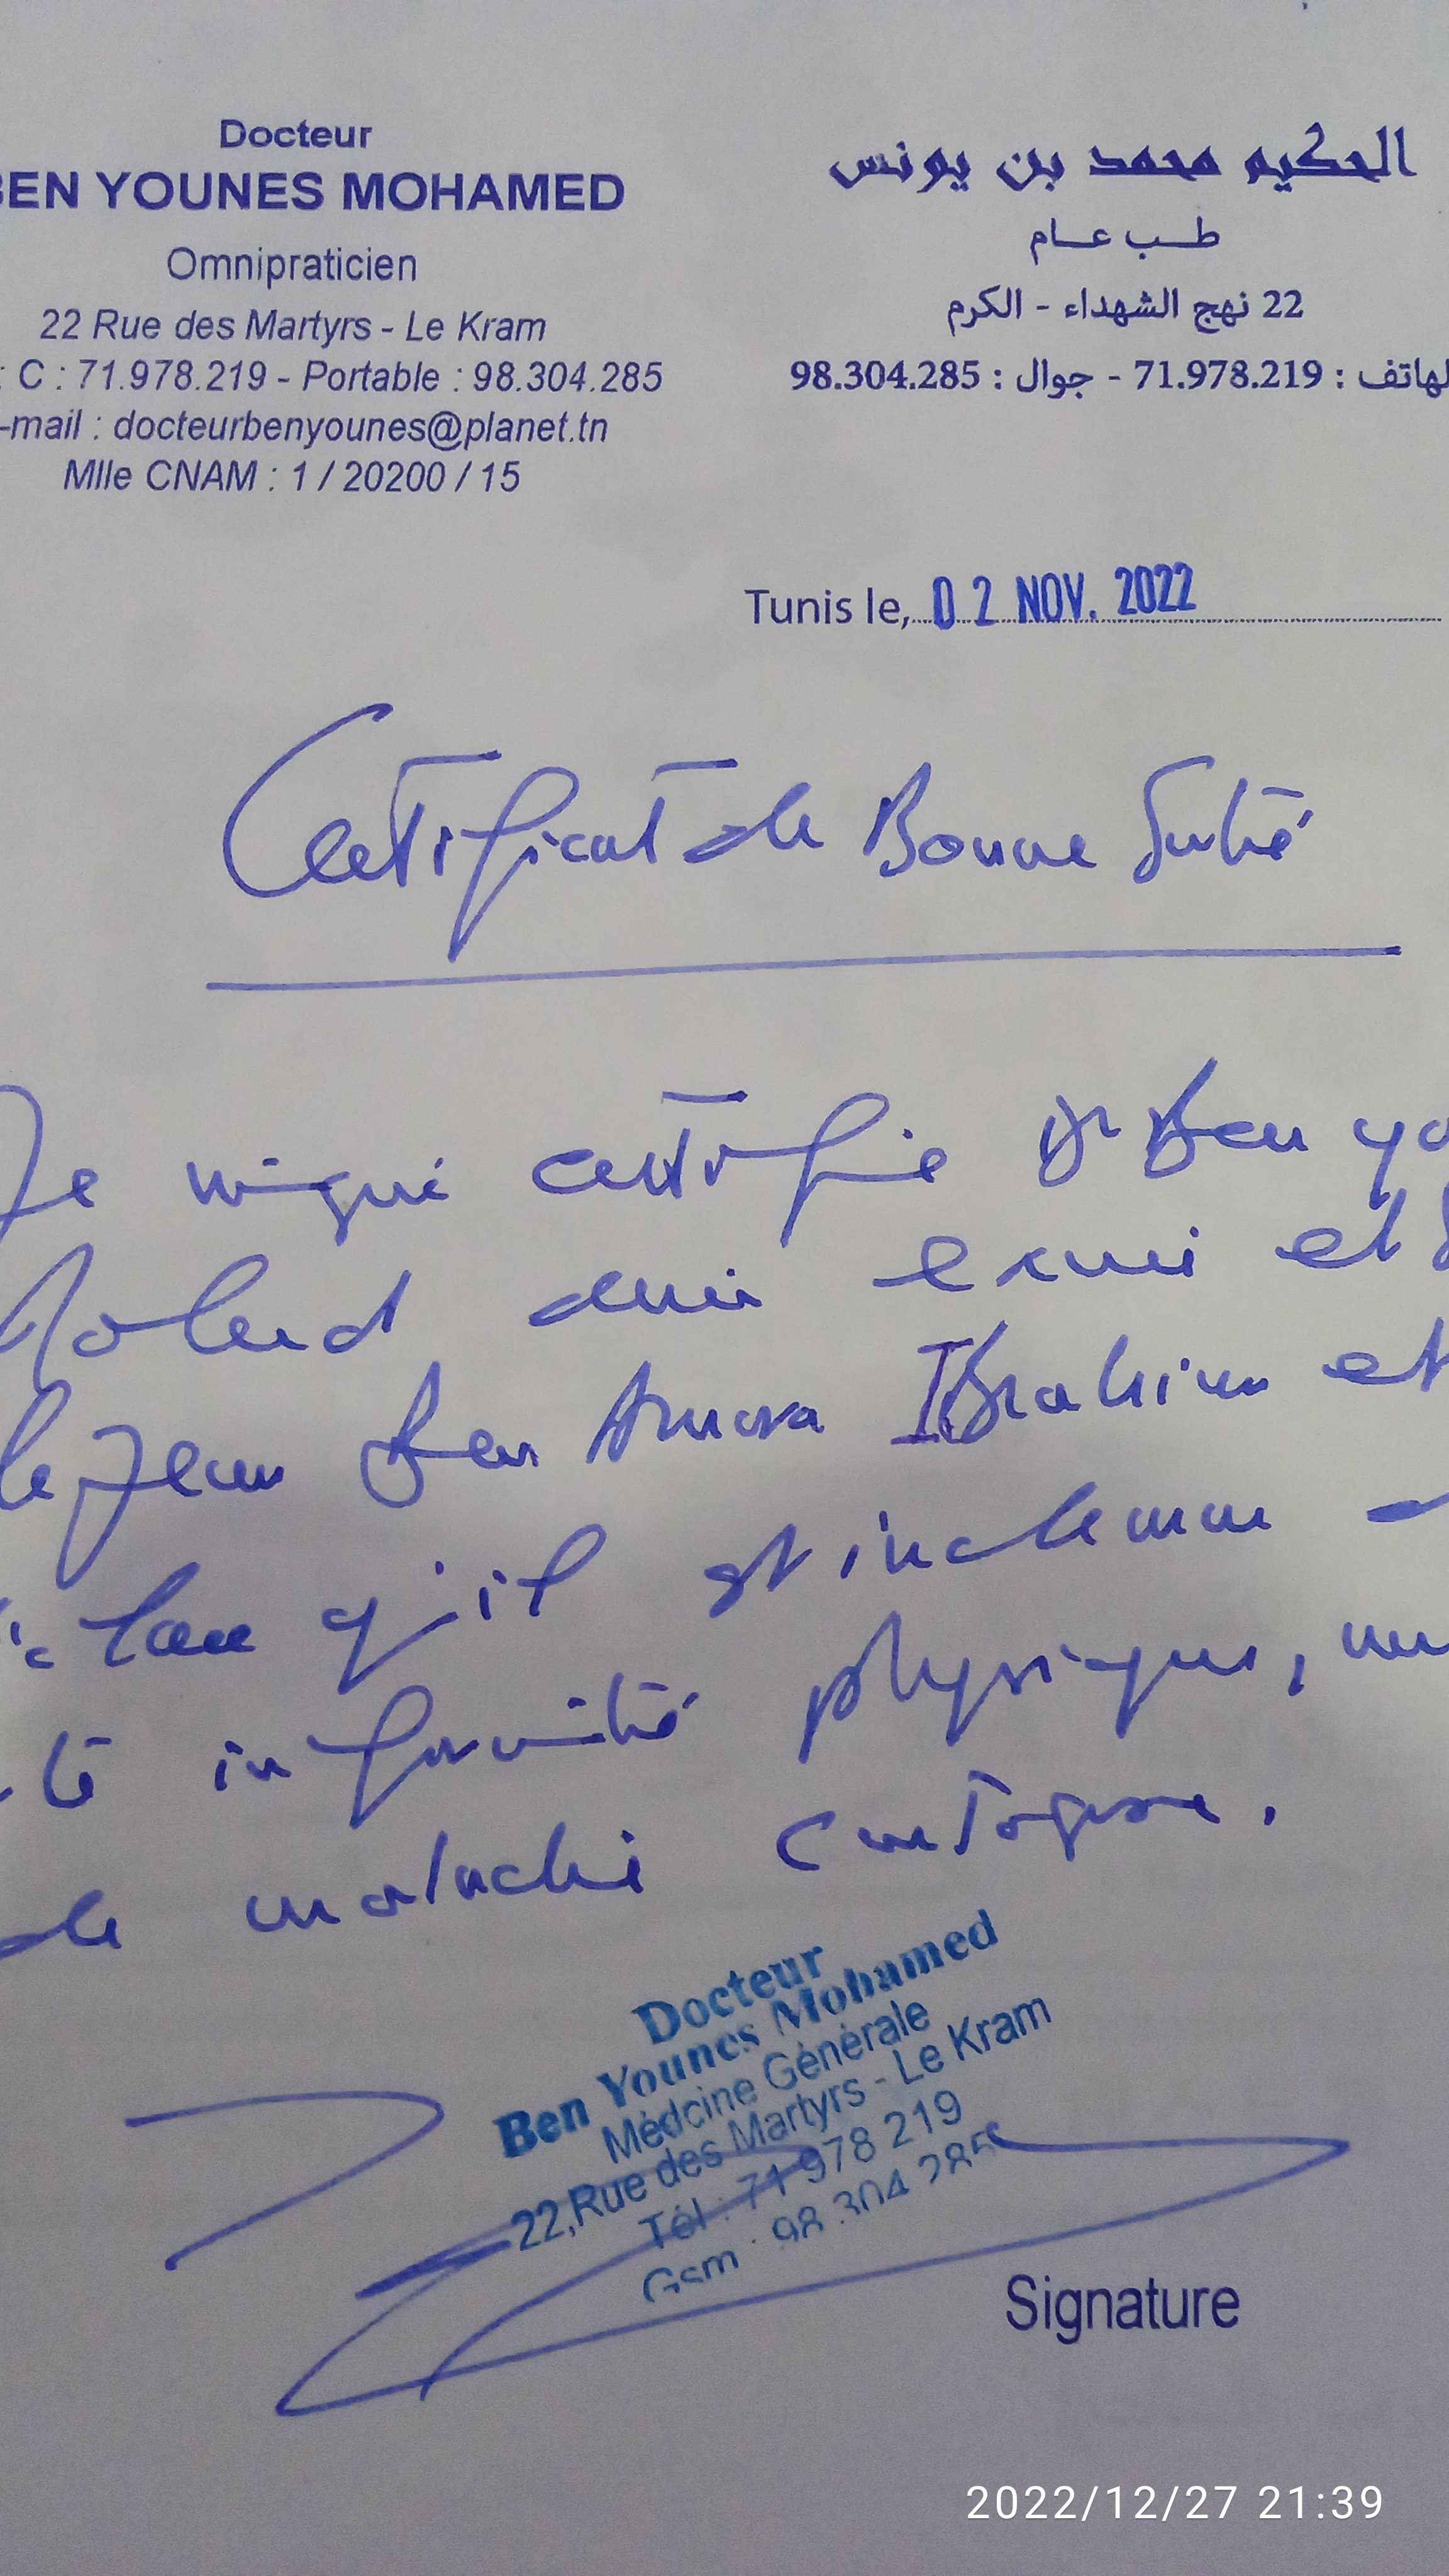 Docteur
BEN YOUNES MOHAMED
Omnipraticien
22 Rue des Martyrs - Le Kram
: C : 71.978.219 - Portable : 98.304.285
-mail : docteurbenyounes@planet.tn
Mlle CNAM : 1 / 20200 / 15
الحكيم محمد بن يونس
طب عام
22 نهج الشهداء - الكرم
لهاتف : 71.978.219 - جوال : 98.304.285
Tunis le, 02 NOV. 2022
Certificat de Bonne Santé
Je certifie Dr Ben yo
et
le Jeun Ben Amora Ibrahim et
qu'il est indemne
té infirmité physique,
de maladie contagieuse.
Docteur
Ben Younes Mohamed
Médcine Générale
22,Rue des Martyrs - Le Kram
Tél : 71 978 219
Gsm : 98 304 285
Signature
2022/12/27 21:39